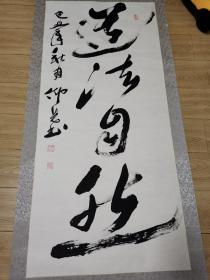 道法自然
己丑年秋月